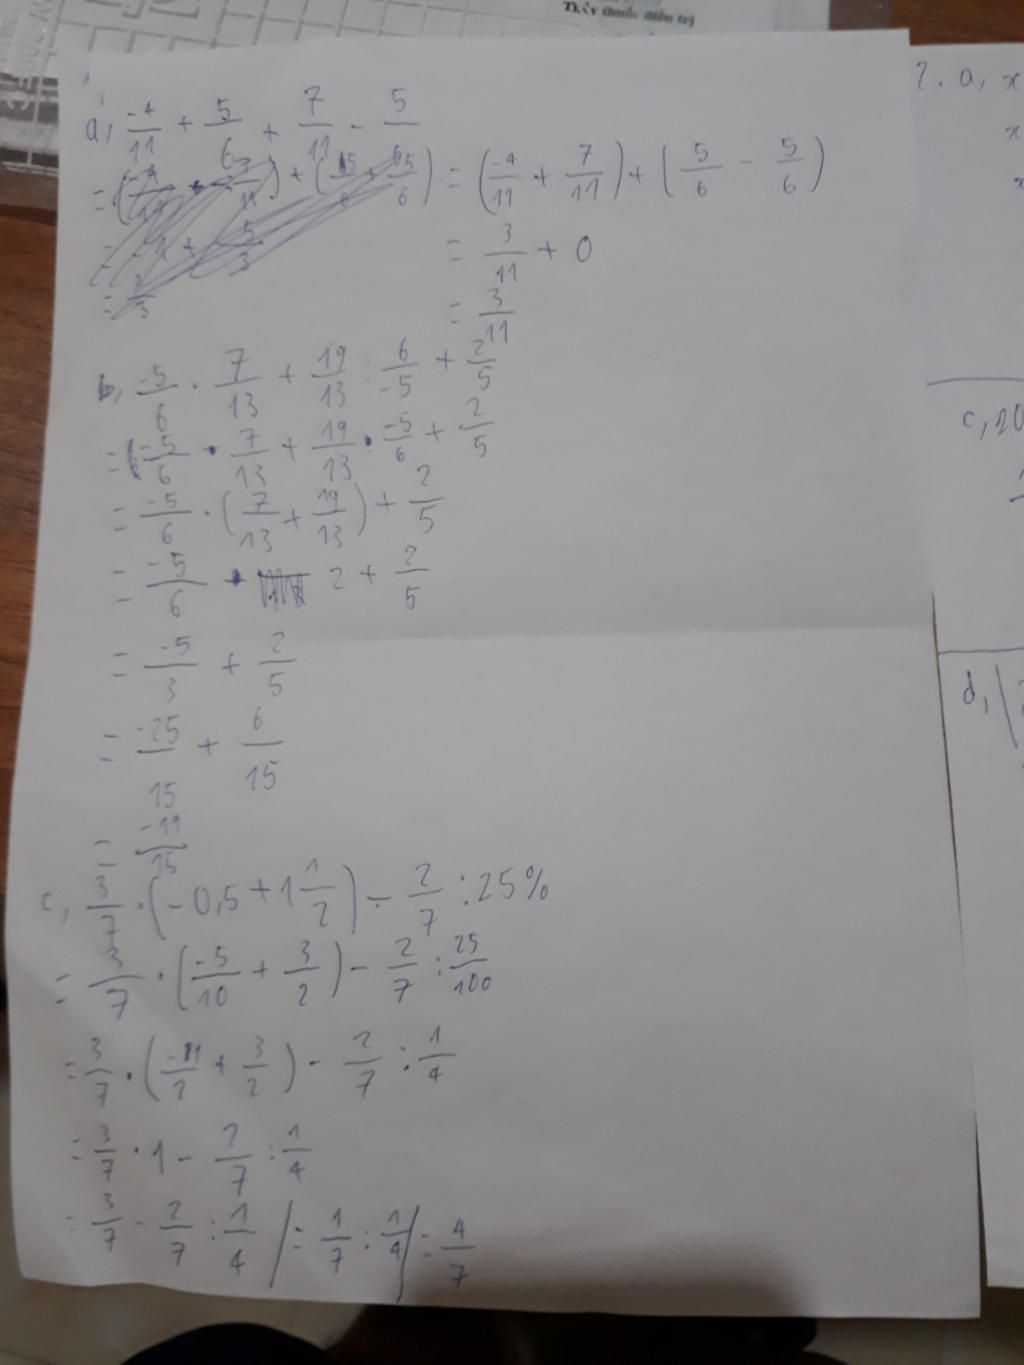 Thầy thuốc điều trị
a, -4/11 + 5/6 + 7/11 - 5/6
= (-4/11 + 7/11) + (5/6 - 5/6)
= 3/11 + 0
= 3/11
b, -5/6 . 7/13 + 19/13 : 6/-5 + 2/5
= -5/6 . 7/13 + 19/13 . -5/6 + 2/5
= -5/6 . (7/13 + 19/13) + 2/5
= -5/6 . 2 + 2/5
= -5/3 + 2/5
= -25/15 + 6/15
= -19/15
c, 3/7 . (-0,5 + 1 1/2) - 2/7 : 25%
= 3/7 . (-5/10 + 3/2) - 2/7 : 25/100
= 3/7 . (-1/2 + 3/2) - 2/7 : 1/4
= 3/7 . 1 - 2/7 : 1/4
= 3/7 - 2/7 : 1/4 / = 1/7 : 1/4 / = 4/7
2. a, x
x
x
c, 20
d,